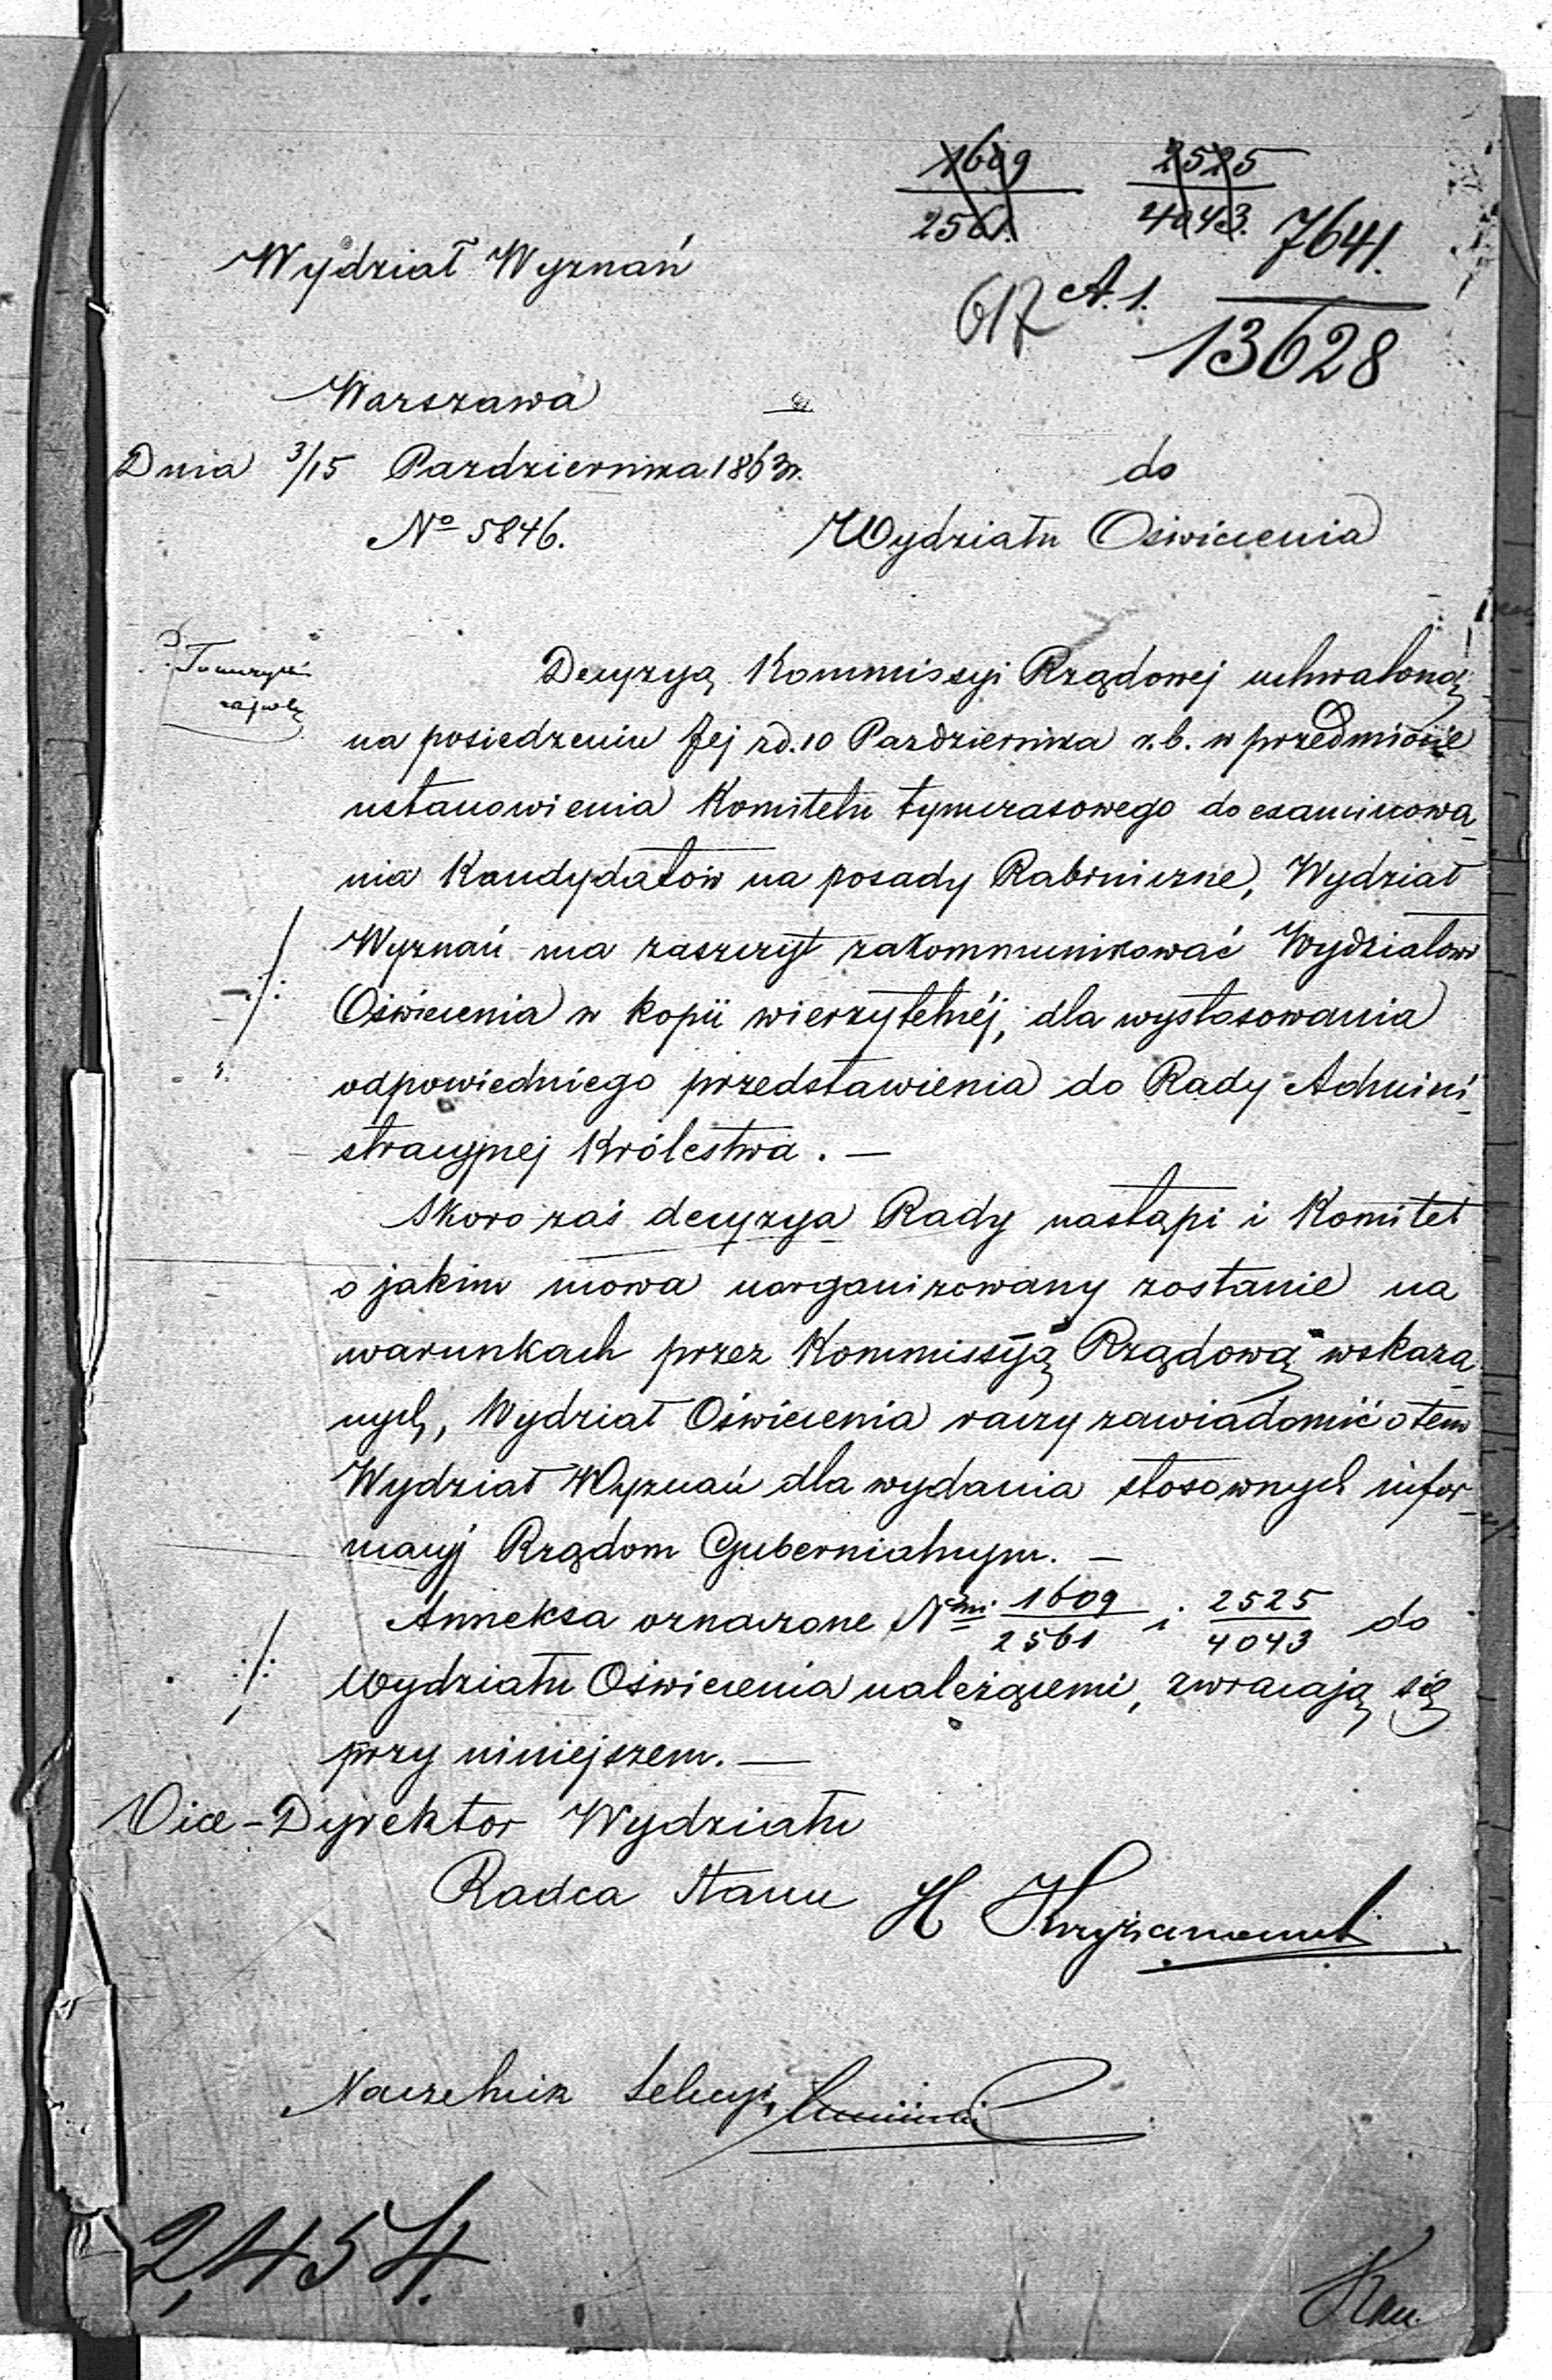 1609 2525
2561 4043. 7641.
Wydział Wyznań
617 A. 1. 13628
Warszawa
Dnia 3/15 Pazdziernika 1863 r.
do
No 5846.
Wydziału Oświecenia
Decyzyą Kommissyi Rządowej uchwaloną
na posiedzeniu Jej z d. 10 Pazdziernika r. b. w przedmiocie
ustanowienia Komitetu tymczasowego do examinowa-
nia Kandydatów na posady Rabiniczne, Wydział
Wyznań ma zaszczyt zakommunikować Wydziałowi
Oświecenia w kopii wierzytelnéj, dla wystosowania
odpowiedniego przedstawienia do Rady Admini-
stracyjnej Królestwa. —
Skoro zaś decyzya Rady nastąpi i Komitet
o jakim mowa uorganizowany zostanie na
warunkach przez Kommissyją Rządową wskaza-
nych, Wydział Oświecenia raczy zawiadomić o tem
Wydział Wyznań dla wydania stosownych infor-
macyj Rządom Gubernialnym. —
Anneksa oznaczone Nrmi 1609/2561 i 2525/4043 do
Wydziału Oświecenia należącemi, zwracają się
przy niniejszem. —
Vice-Dyrektor Wydziału
Radca Stanu H Krzyżanowski
Naczelnik Sekcyi
2,454.